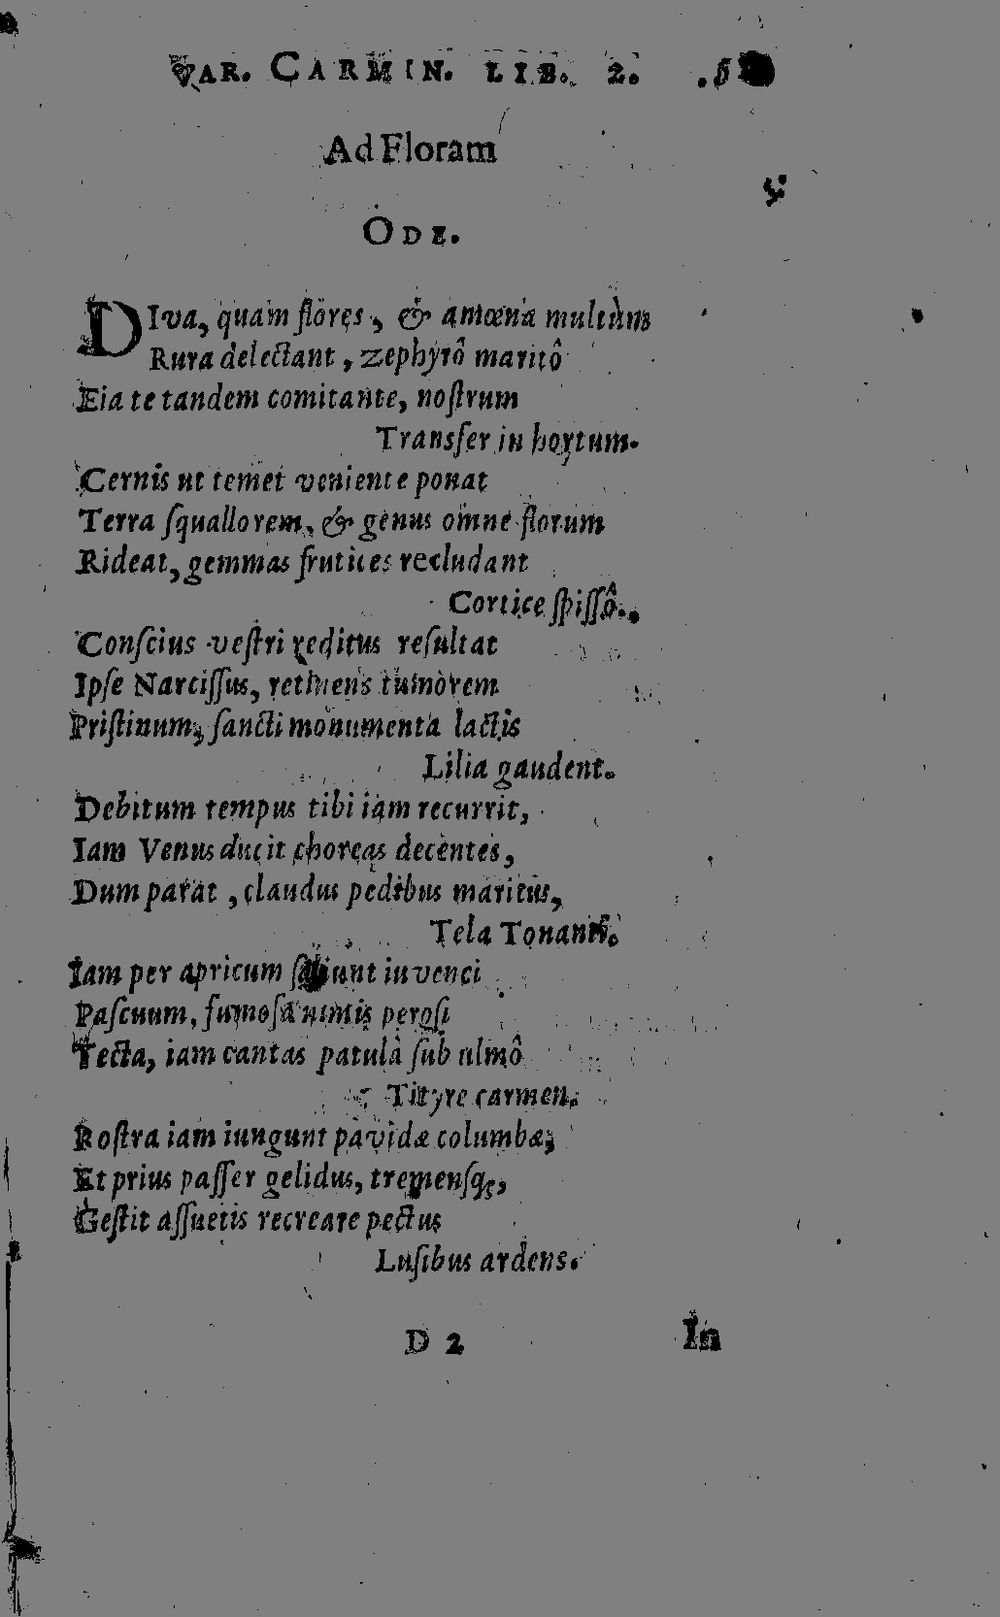 VAR. CARMIN. LIB. 2.
Ad Floram
ODE.
DIva, quam flores, & amœna multùm
Rura delectant, zephyrô maritô
Eia te tandem comitante, nostrum
Transfer in hortum.
Cernis ut temet veniente ponat
Terra squallorem, & genus omne florum
Rideat, gemmas frutices recludant
Cortice spissô.
Conscius vestri reditus resultat
Ipse Narcissus, retinens tumorem
Pristinum, sancti monumenta lactis
Lilia gaudent.
Debitum tempus tibi iam recurrit,
Iam Venus ducit choreas decentes,
Dum parat, claudus pedibus maritus,
Tela Tonanti.
Iam per apricum saliunt iuvenci
Pascuum, fumosa nimis perosi
Tecta, iam cantas patulâ sub ulmô
Tityre carmen.
Rostra iam iungunt pavidæ columbæ,
Et prius passer gelidus, tremensq;,
Gestit assuetis recreare pectus
Lusibus ardens.
D 2
In